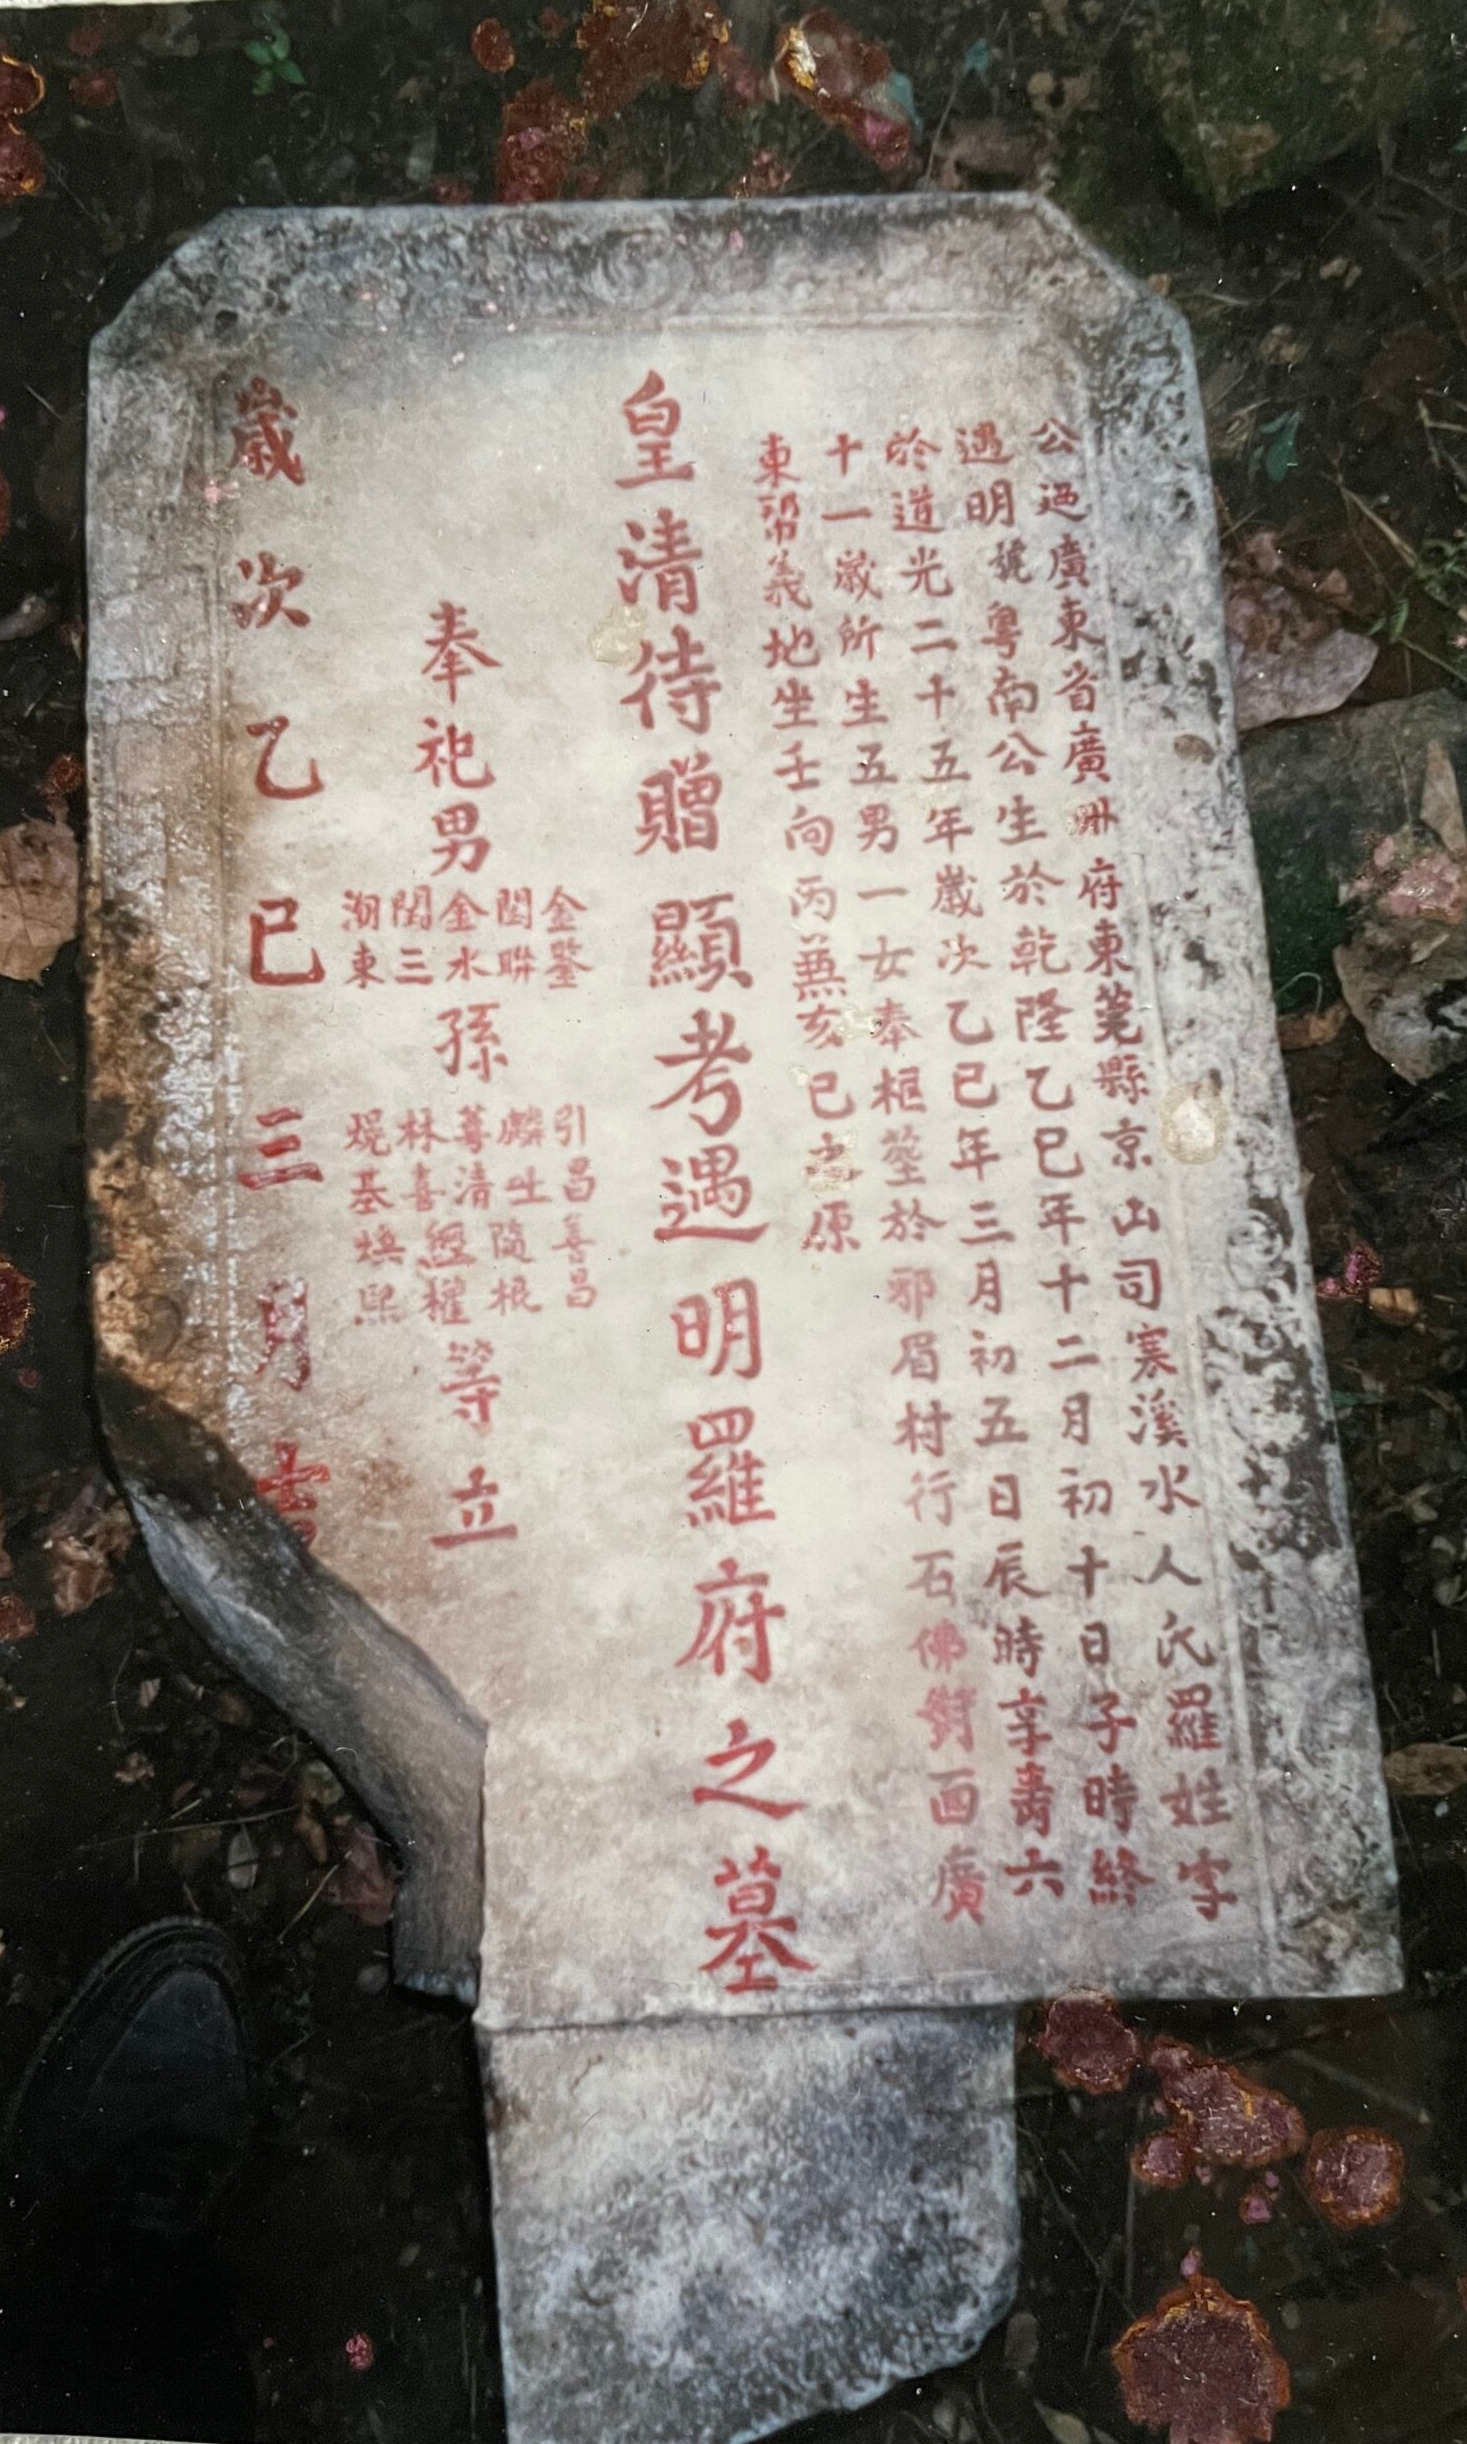 公迺廣東省廣州府東莞縣京山司寒溪水人氏羅姓字
遇明號粵南公生於乾隆乙巳年十二月初十日子時終
於道光二十五年歲次乙巳年三月初五日辰時享壽六
十一歲所生五男一女奉柩塟於邪眉村行石佛對面廣
東幫義地坐壬向丙兼亥巳之原
皇清待贈顯考遇明羅府之墓
奉祀男
金鑒
閏聯
金水
閏三
潮東
孫
引昌善昌
麟吐隨根
萼清
林喜
經權
焜基煥熙
等立
歲次乙巳三月吉